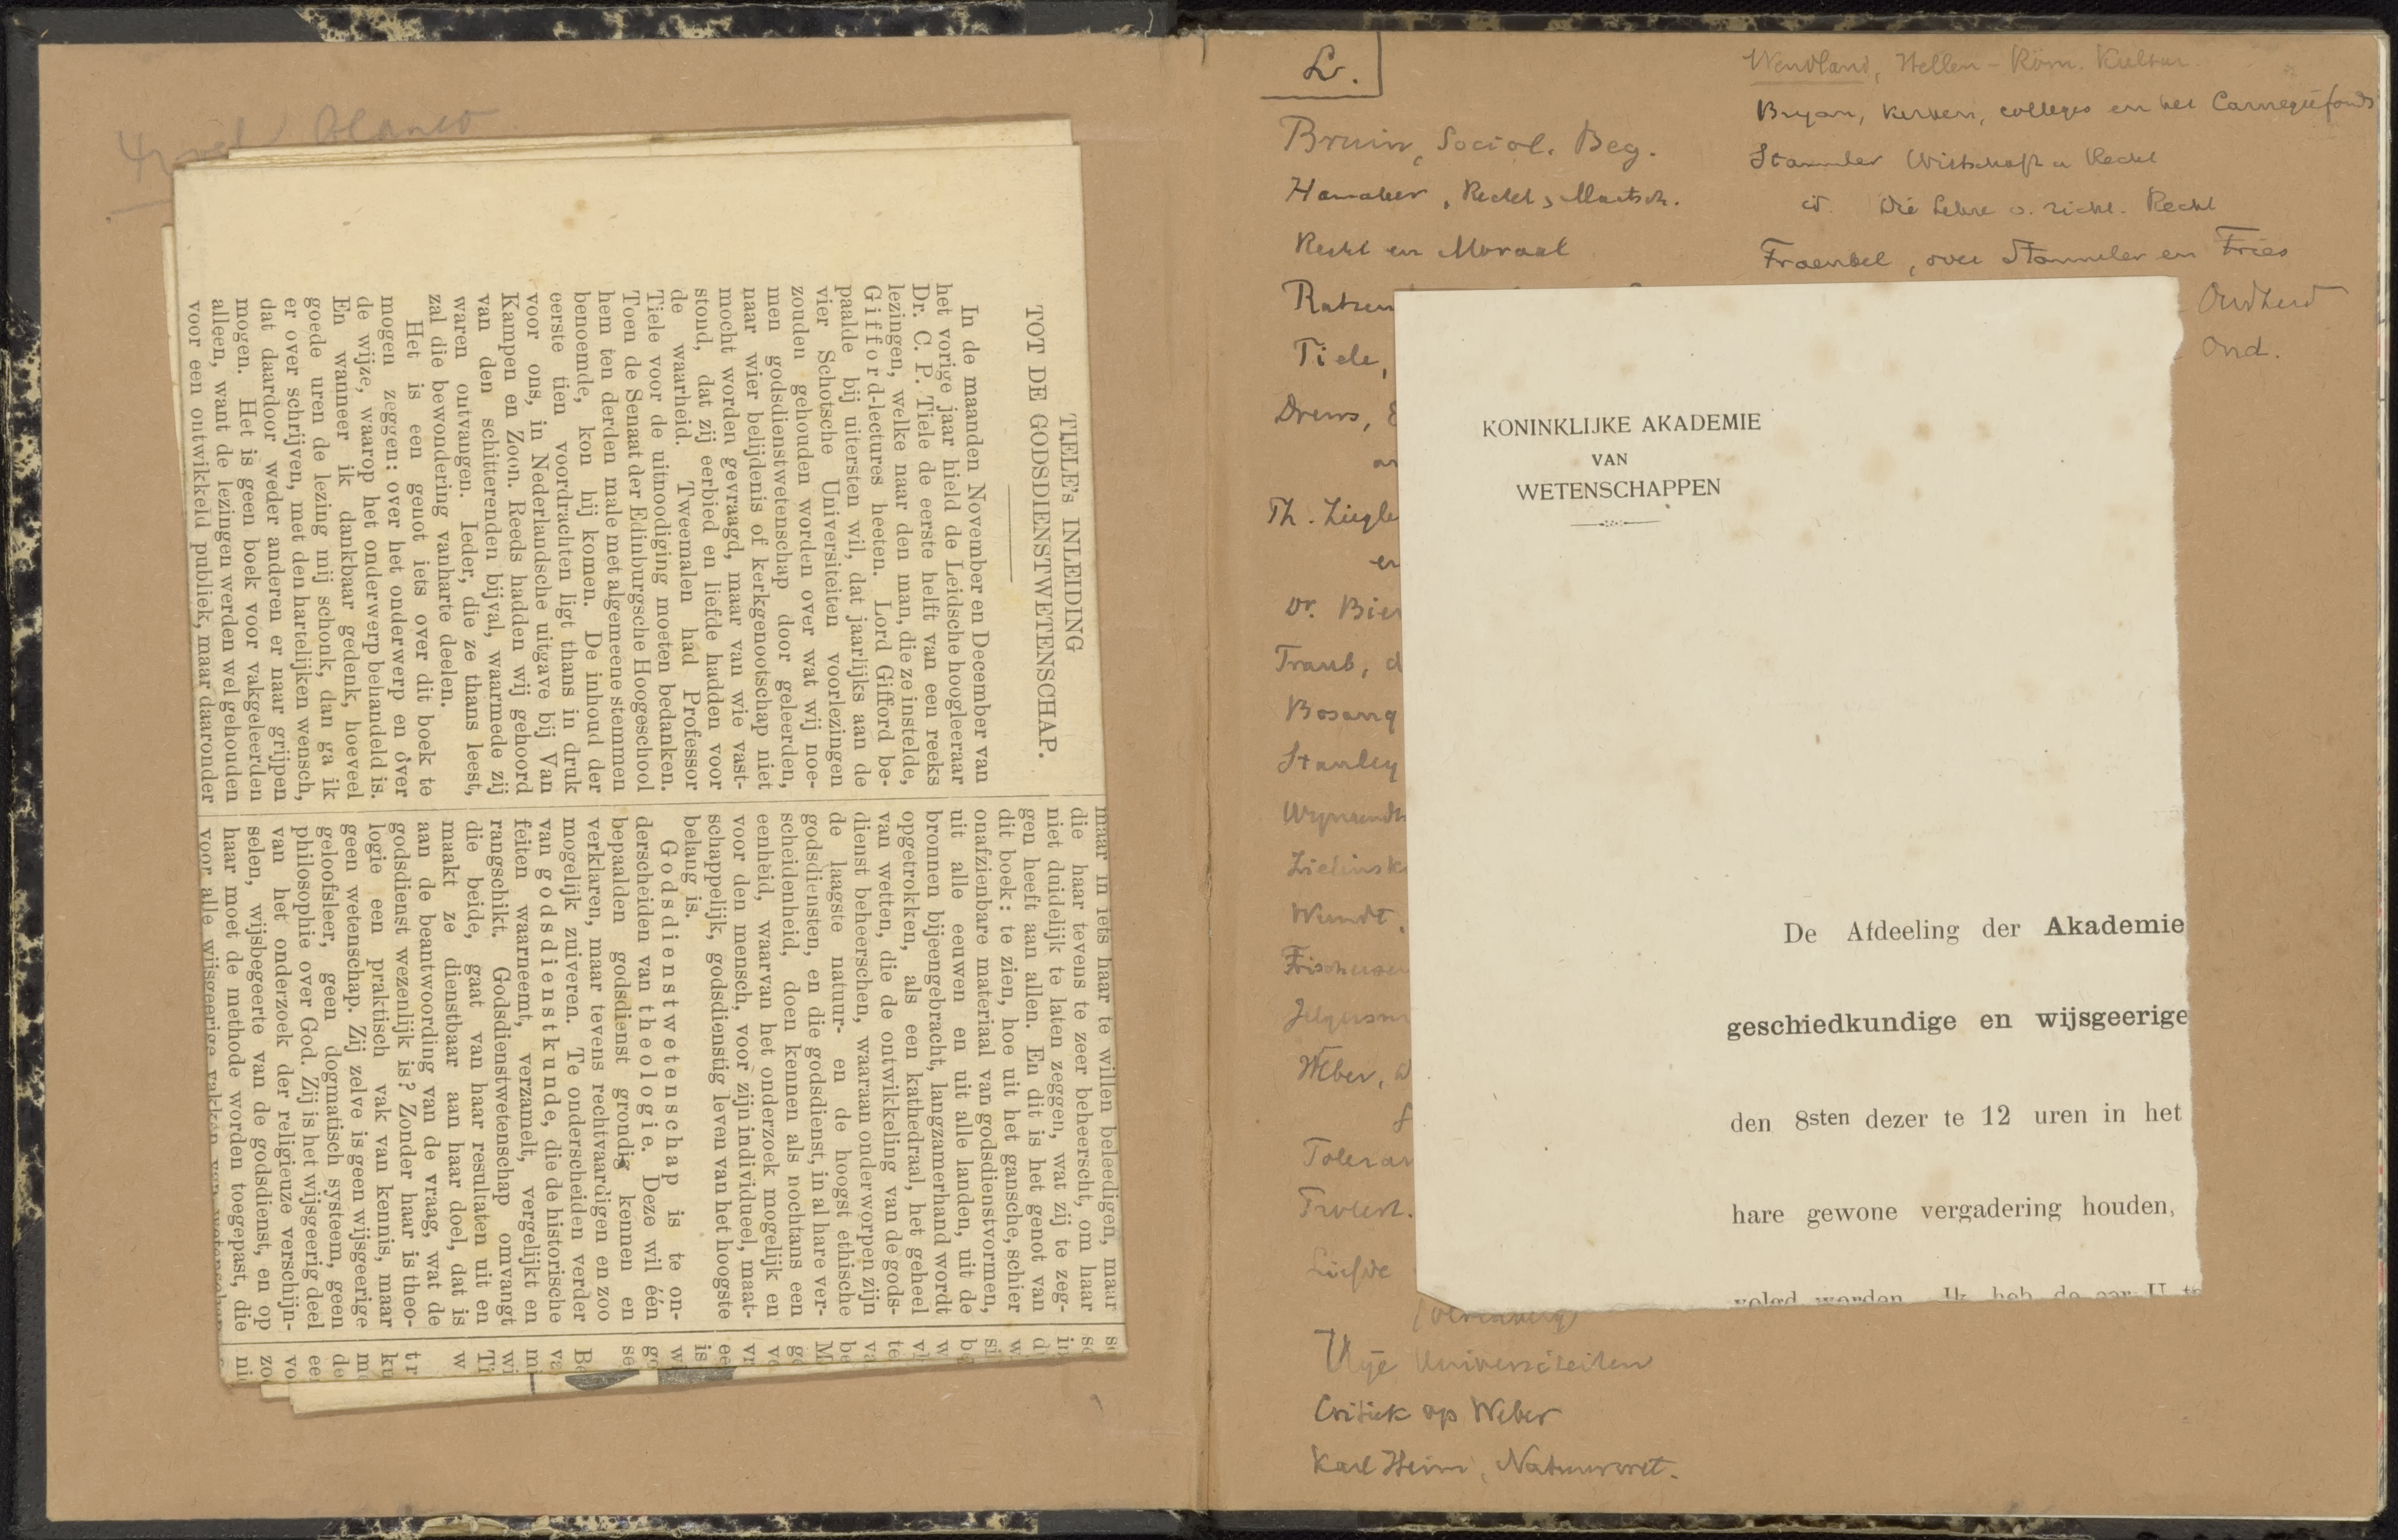 blanco
TIELE's INLEIDING
TOT DE GODSDIENSTWETENSCHAP.
In de maanden November en December van
het vorige jaar hield de Leidsche hoogleeraar
Dr. C. P. Tiele de eerste helft van een reeks
lezingen, welke naar den man, die ze instelde,
Gifford-lectures heeten. Lord Gifford be-
paalde bij uitersten wil, dat jaarlijks aan de
vier Schotsche Universiteiten voorlezingen
zouden gehouden worden over wat wij noe-
men godsdienstwetenschap door geleerden,
naar wier belijdenis of kerkgenootschap niet
mocht worden gevraagd, maar van wie vast-
stond, dat zij eerbied en liefde hadden voor
de waarheid. Tweemalen had Professor
Tiele voor de uitnoodiging moeten bedanken.
Toen de Senaat der Edinburgsche Hoogeschool
hem ten derden male met algemeene stemmen
benoemde, kon hij komen. De inhoud der
eerste tien voordrachten ligt thans in druk
voor ons, in Nederlandsche uitgave bij Van
Kampen en Zoon. Reeds hadden wij gehoord
van den schitterenden bijval, waarmede zij
waren ontvangen. Ieder, die ze thans leest,
zal die bewondering vanharte deelen.
Het is een genot iets over dit boek te
mogen zeggen: over het onderwerp en óver
de wijze, waarop het onderwerp behandeld is.
En wanneer ik dankbaar gedenk, hoeveel
goede uren de lezing mij schonk, dan ga ik
er over schrijven, met den hartelijken wensch,
dat daardoor weder anderen er naar grijpen
mogen. Het is geen boek voor vakgeleerden
alleen, want de lezingen werden wel gehouden
voor een ontwikkeld publiek, maar daaronder
maar in iets haar te willen beleedigen, maar
die haar tevens te zeer beheerscht, om haar
niet duidelijk te laten zeggen, wat zij te zeg-
gen heeft aan allen. En dit is het genot van
dit boek: te zien, hoe uit het gansche, schier
onafzienbare materiaal van godsdienstvormen,
uit alle eeuwen en uit alle landen, uit de
bronnen bijeengebracht, langzamerhand wordt
opgetrokken, als een kathedraal, het geheel
van wetten, die de ontwikkeling van de gods-
dienst beheerschen, waaraan onderworpen zijn
de laagste natuur- en de hoogst ethische
godsdiensten, en die godsdienst, in al hare ver-
scheidenheid, doen kennen als nochtans een
eenheid, waarvan het onderzoek mogelijk en
voor den mensch, voor zijn individueel, maat-
schappelijk, godsdienstig leven van het hoogste
belang is.
Godsdienstwetenschap is te on-
derscheiden van theologie. Deze wil één
bepaalden godsdienst grondig kennen en
verklaren, maar tevens rechtvaardigen en zoo
mogelijk zuiveren. Te onderscheiden verder
van godsdienstkunde, die de historische
feiten waarneemt, verzamelt, vergelijkt en
rangschikt. Godsdienstwetenschap omvangt
die beide, gaat van haar resultaten uit en
maakt ze dienstbaar aan haar doel, dat is
aan de beantwoording van de vraag, wat de
godsdienst wezenlijk is? Zonder haar is theo-
logie een praktisch vak van kennis, maar
geen wetenschap. Zij zelve is geen wijsgeerige
geloofsleer, geen dogmatisch systeem, geen
philosophie over God. Zij is het wijsgeerig deel
van het onderzoek der religieuze verschijn-
selen, wijsbegeerte van de godsdienst, en op
haar moet de methode worden toegepast, die
voor alle wijsgeerige vakken van wetenschap
L.
Bruin, Sociol. Beg.
Hamaker, Recht, Maatsch.
Recht en Moraal
Ratzen
Tiele,
Drews,
Th. Ziegle
en
Dr. Bier
Traub, d
Bosanq
Stanley
Wijnaendts
Zielinsk
Wundt,
Frischeisen
Jelgersm
Weber,
Toleran
Troelt.
Liefde
Vrije Universiteiten
Critiek op Weber
Karl Heim, Natuurwet.
Wendland, Hellen-Röm. Kultur.
Bryan, Kerken, colleges en het Carnegiefonds
Stammler Wirtschaft u Recht
id. Die Lehre v. richt. Recht
Fraenkel, over Stammler en Fries
Oudheid
Oud.
KONINKLIJKE AKADEMIE
VAN
WETENSCHAPPEN
De Afdeeling der Akademie
geschiedkundige en wijsgeerige
den 8sten dezer te 12 uren in het
hare gewone vergadering houden,
volgd worden. Ik heb de eer U te